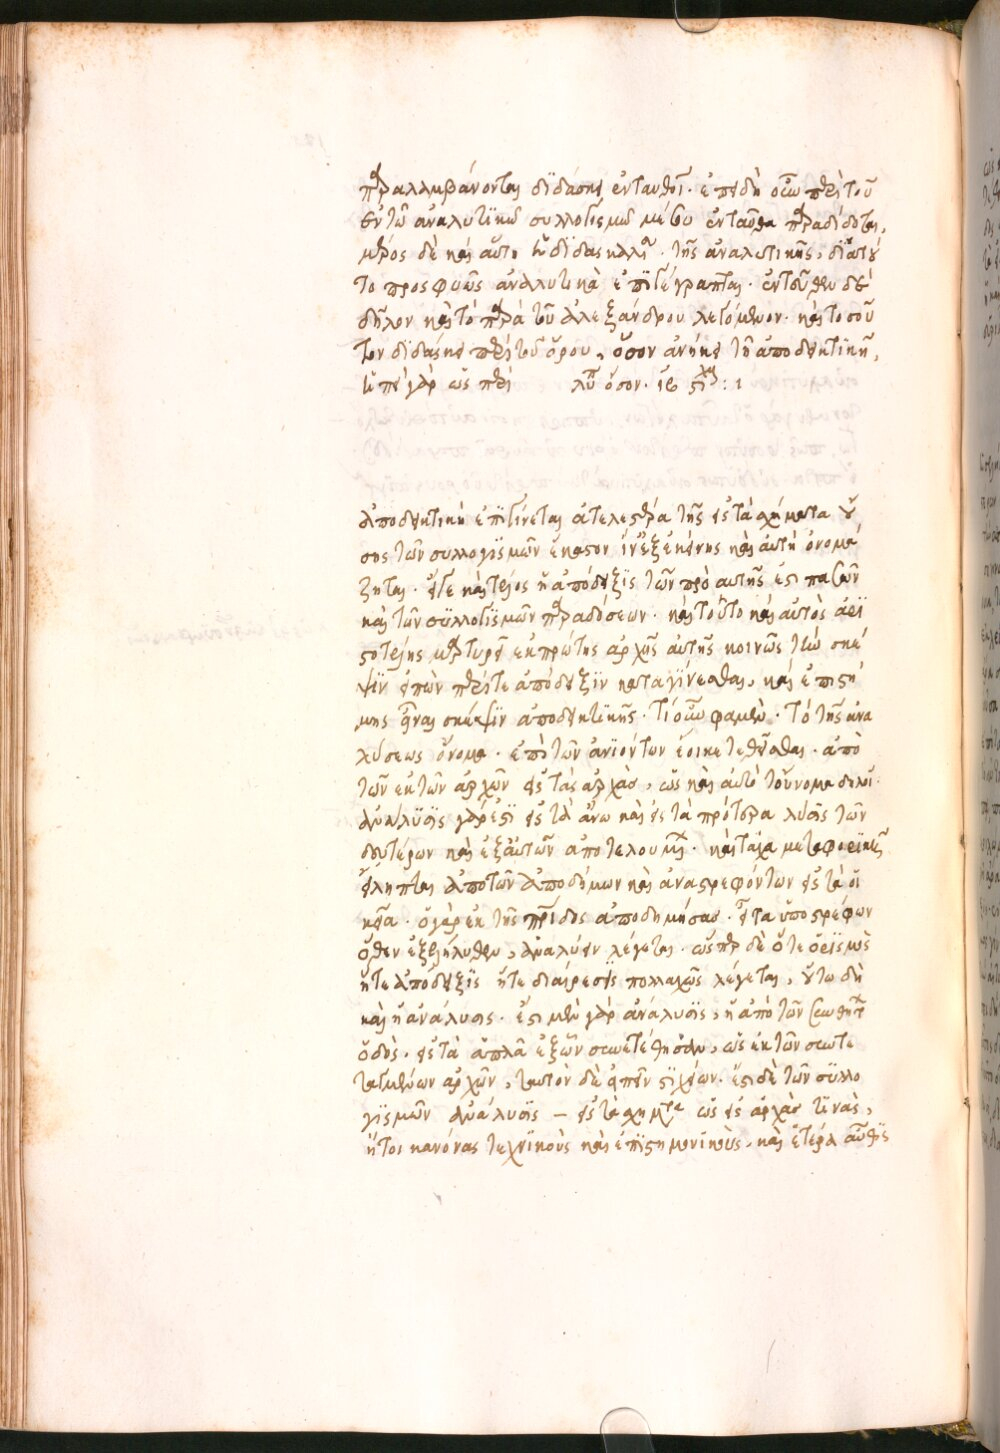 παραλαμβάνοντας διδάσκει ἐνταυθοῖ. ἐπειδὴ οὖν περὶ τοῦ
ἐν τῶ ἀναλυτικῶ συλλογισμῶ μέσου ἐνταῦθα παραδίδοται,
μέρος δὲ καὶ αὕτη διδασκαλία τῆς ἀναλυτικῆς, διὰ τοῦ
το προσφυῶς ἀναλυτικὰ ἐπιγέγραπται. ἐντεῦθεν δὲ
δῆλον καὶ τὸ παρὰ τοῦ ἀλεξάνδρου λεγόμενον. καὶ τοσοῦ
τον διδάσκει περὶ τοῦ ὅρου, ὅσον ἀνήκει τῆ ἀποδεικτικῆ,
εἶπε γὰρ ὡς περὶ λυ ὅσον.
ἀποδεικτικὴ ἐπιγίνεται ἀτελεστέρα τῆς εἰς τὰ σχήματα οὔ
σης τῶν συλλογισμῶν ἕκαστον ἐξ ἐκείνης καὶ αὐτὴ ὀνομά
ζηται. εἴγε καὶ τέλος ἡ ἀπόδειξις τῶν πρὸ αυτῆς ἐστι πασῶν
καὶ τῶν συλλογισμῶν παραδόσεων. καὶ τοῦτο καὶ αὐτὸς ἀρι
στοτέλης μαρτυρεῖ ἐκ πρώτης ἀρχῆς αὐτῆς κοινῶς τὴν σκέ
ψιν εἰπὼν περί τε ἀπόδειξιν καταγίνεσθαι, καὶ ἐπιστή
μης εἶναι σκέψιν ἀποδεικτικῆς. Τί οὖν φαμὲν. Τὸ τῆς ἀνα
λύσεως ὄνομα. ἐπὶ τῶν ἀνιόντων ἔοικε τεθεῖσθαι. ἀπὸ
τῶν ἐκ τῶν ἀρχῶν εἰς τὰς ἀρχὰς, ὡς καὶ αὐτὸ τοὔνομα δηλοῖ.
ἀνάλυσις γάρ ἐστι εἰς τὰ ἄνω καὶ εἰς τὰ πρότερα λύσις τῶν
δευτέρων καὶ ἐξ αὐτῶν ἀποτελουμένων. καὶ τάχα μεταφορικῶς
εἴληπται ἀπὸ τῶν ἀποδήμων καὶ ἀναστρεφόντων εἰς τὰ οἰ
κεῖα. ὁ γὰρ ἐκ τῆς πατρίδος ἀποδημήσας. εἶτα ὑποστρέφων
ὅθεν ἐξεληλύθεν, ἀναλύειν λέγεται. ὥσπερ δὲ ὅτε ὁρισμὸς
ἥτε ἀπόδειξις ἥτε διαίρεσις πολλαχῶς λέγεται, οὕτω δὴ
καὶ ἡ ἀνάλυσις. ἔστι μὲν γὰρ ἀνάλυσις, ἡ ἀπὸ τῶν συνθέτων
ὁδὸς. εἰς τὰ ἁπλᾶ ἐξ ὧν συνετέθησαν, ὡς ἐκ τῶν συντε
ταγμένων ἀρχῶν, ταυτὸν δὲ εἰπεῖν στιχείων. ἔστι δὲ τῶν συλλο
γισμῶν ἀνάλυσις – εἰς τὰ σχήματα ὡς εἰς ἀρχὰς τινὰς,
ἤτοι κανόνας τεχνικοὺς καὶ ἐπιστημονικοὺς. καὶ ἑτέρα αὖθις